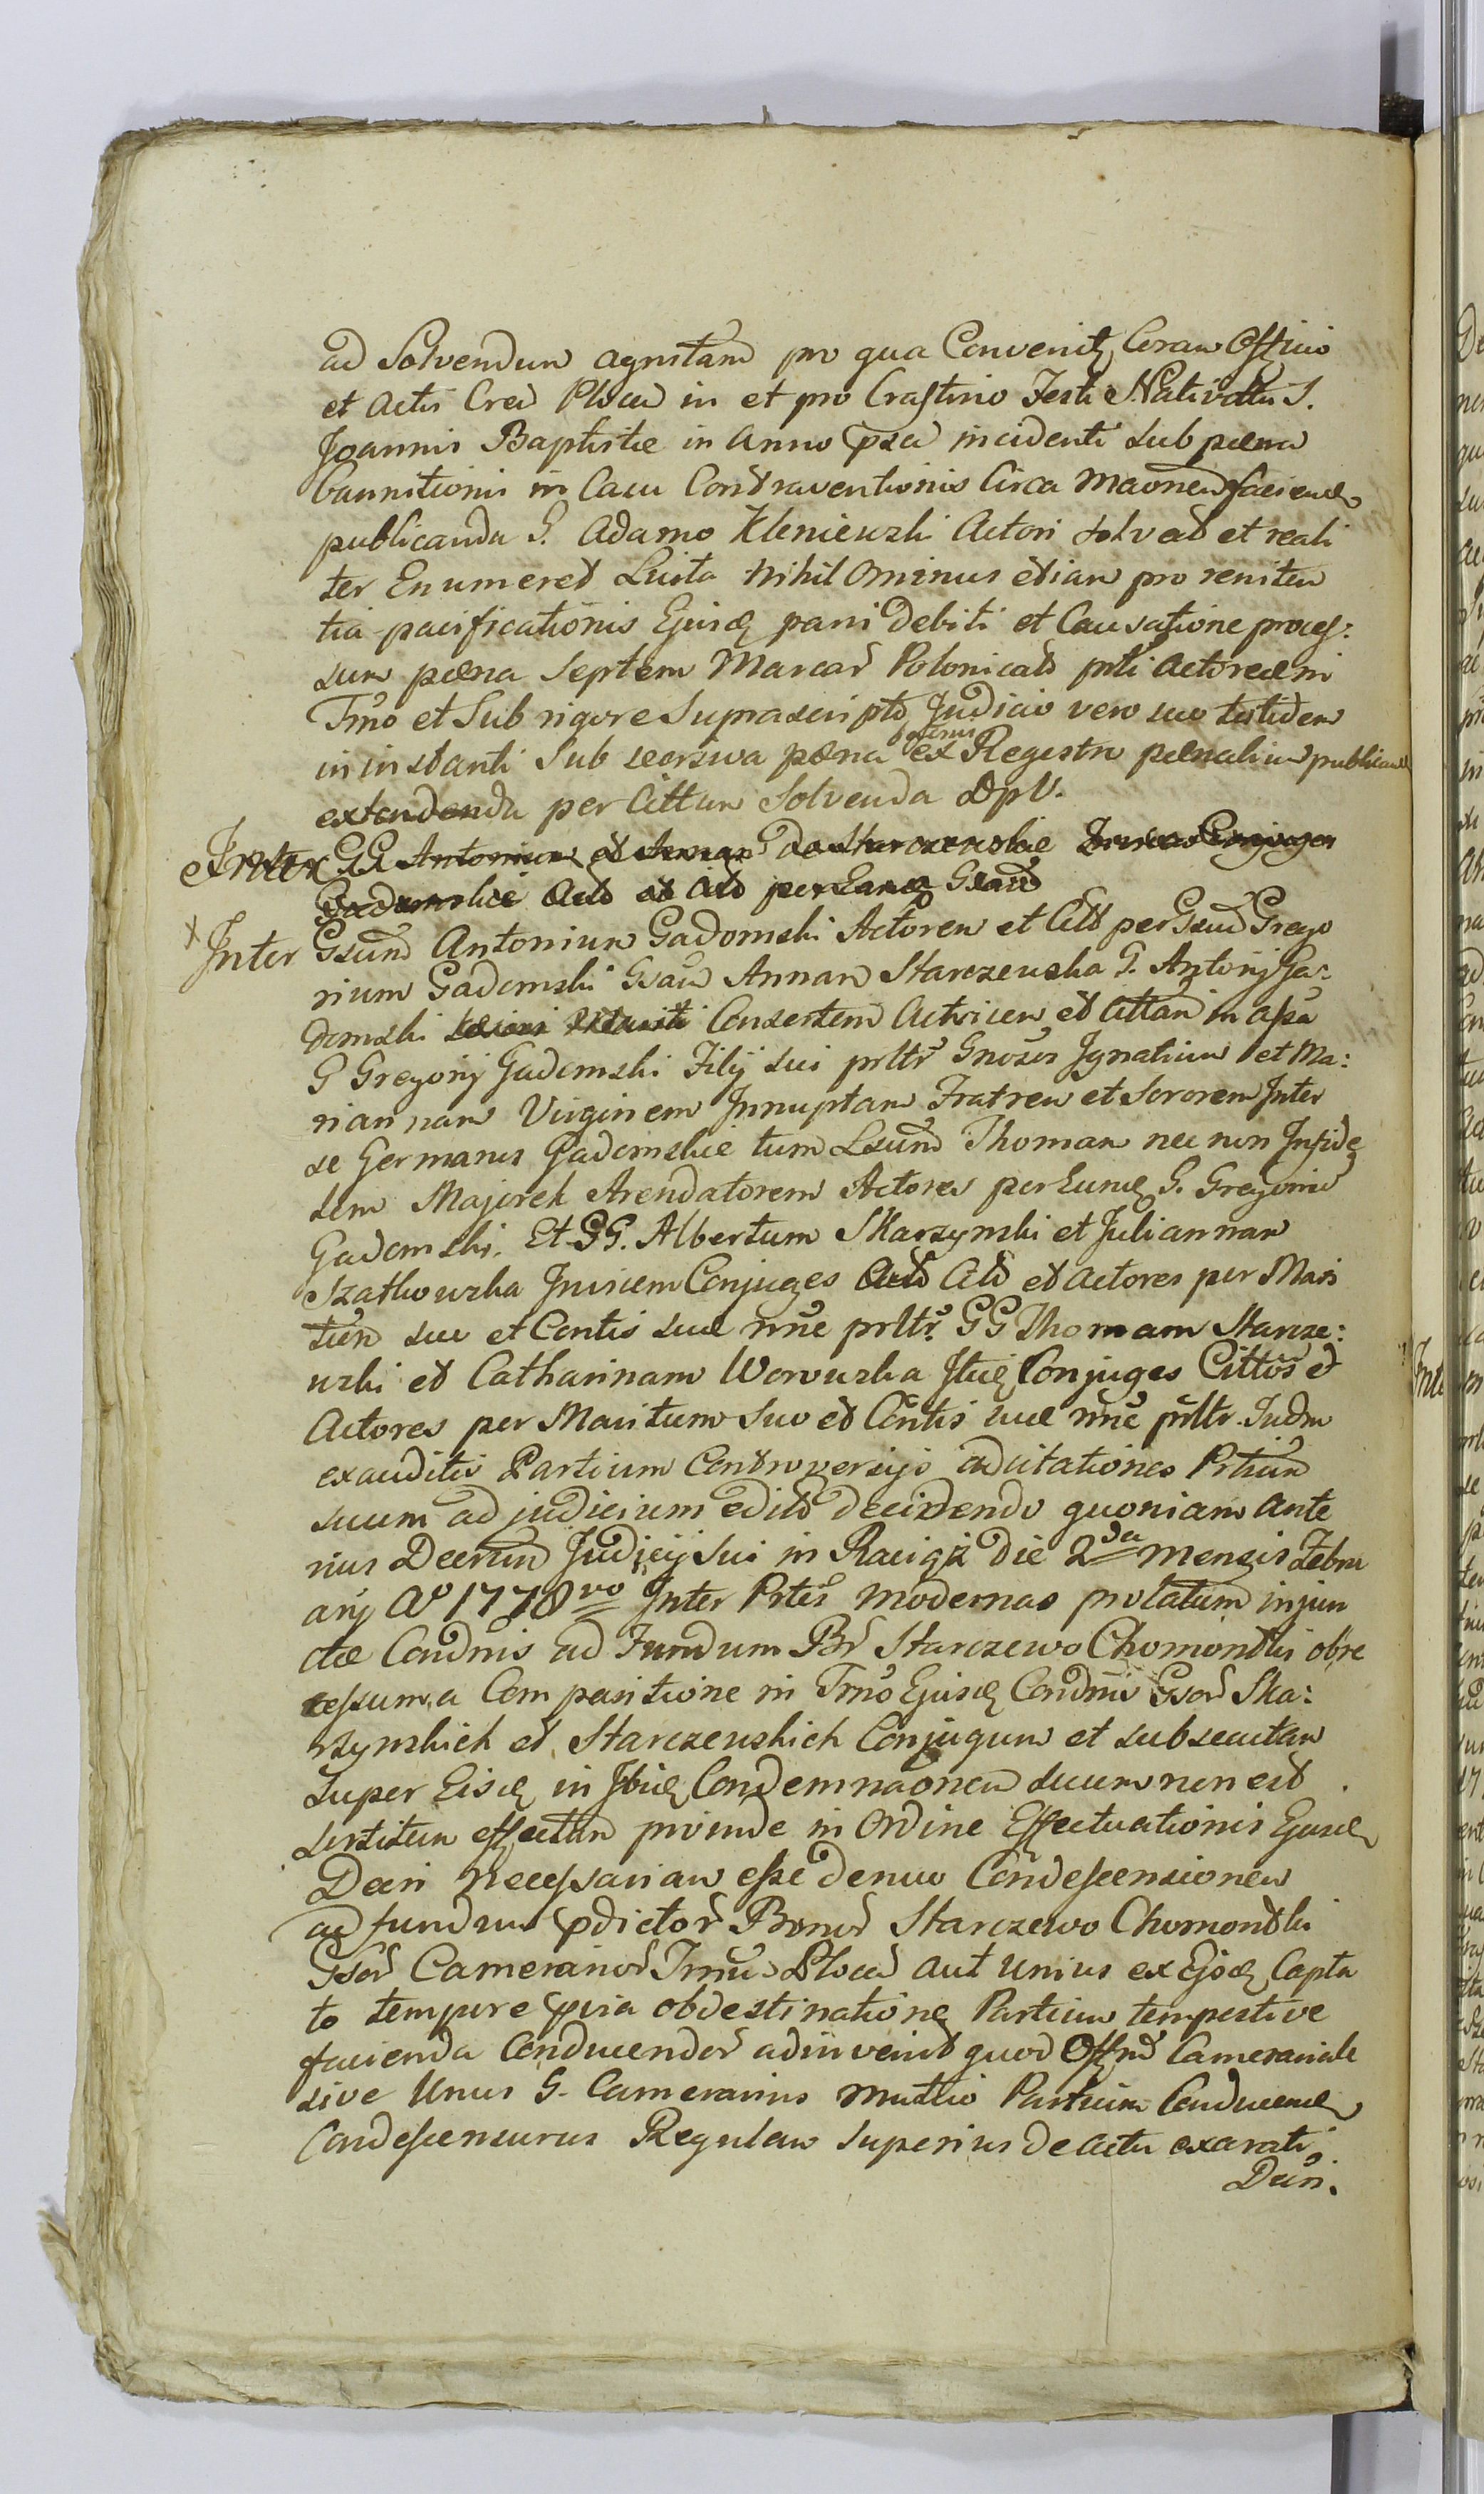 ad Solvendum agnitam pro qua Convenit, Coram Officio
et Actis Cren Plocen in et pro Crastino Festi Nativottis S.
Joannis Baptistæ in Anno pza incidenti sub pæna
bannitionis in Casu Contraventionis Circa maonem faciend
publicanda G. Adamo Kleniewski Actori solvat et reali
ter Enumeret Luita Nihil Ominus etiam pro reniten
tia pacificationis Ejusd parvi Debiti et Causatione proces:
sum pæna septem Marcar Polonicalr prti Actoreæ ni
Tmo et Sub rigore Suprascripto Judicio vero suo ibidem
in instanti sub seorsiva pæna ex Registro pænalium publicand
extendenda per Cittum Solvenda DpV.
Inter GG Antonium et Annam de Starczewskie Conjuges
Gadomskie Act et Citt per Eand Gsam
Inter Gsum Antonium Gadomski Actorem et Citt per Gsum Grego
rium Gadomski Gsam Annam Starczewska G. Antonij Ga:
domski Consortem Actricem et Cittam in assa
G Gregorij Gadomski Filij sui prltr Gnosos Ignatium et Ma:
riannam Virginem Innuptam Fratrem et Sororem Inter
se Germanos Gadomskie tum Lsum Thomam nec non Infide
lem Majorek Arendatorem Actores per Eund G. Gregorium
Gadomski. Et GG. Albertum Skarzynski et Juliannam
Szatkowska Invicem Conjuges Citt et Actores per Mari
tum suo et Contis suæ nne prltr. GG Thomam Starcze:
wski et Catharinam Worowska Itid Conjuges Cittos et
Actores per Maritum Suo et Contis suæ nne prltr. Judm
exauditis Partium Controversijs ad citationes Prtium
suum ad judicium edit decidendo quoniam ante
rius Decrum Judicij sui in Raciąż die 2da mensis Febru
arij Ao 1778vo Inter Prtes modernas prolatum injun
ctæ Condnis ad Fundum Br Starczewo Chomontki obre
cessum a Compositione in Tmo Ejusd Condnis Gsor Ska:
rzynskich et Starczewskich Conjugum et subsecutam
super Eisd in Ibid Condemnaonem suum non est
sortitum effectum proinde in Ordine Effectuationis Ejusd
Decri necessariam esse denuo Condescensionem
ad fundum pdictor Bonor Starczewo Chomontki
Gsor Camerarior Trnu Plocen aut Unius ex Ejsd Capta
to tempore pvia obdestinatione Partium tempestive
facienda Conducendor adinvenit quod Offm Camerariale
sive Unus G. Camerarius mutuo Partium Conducend
Condescensurus Regulam superius de actu exarati
Decri.